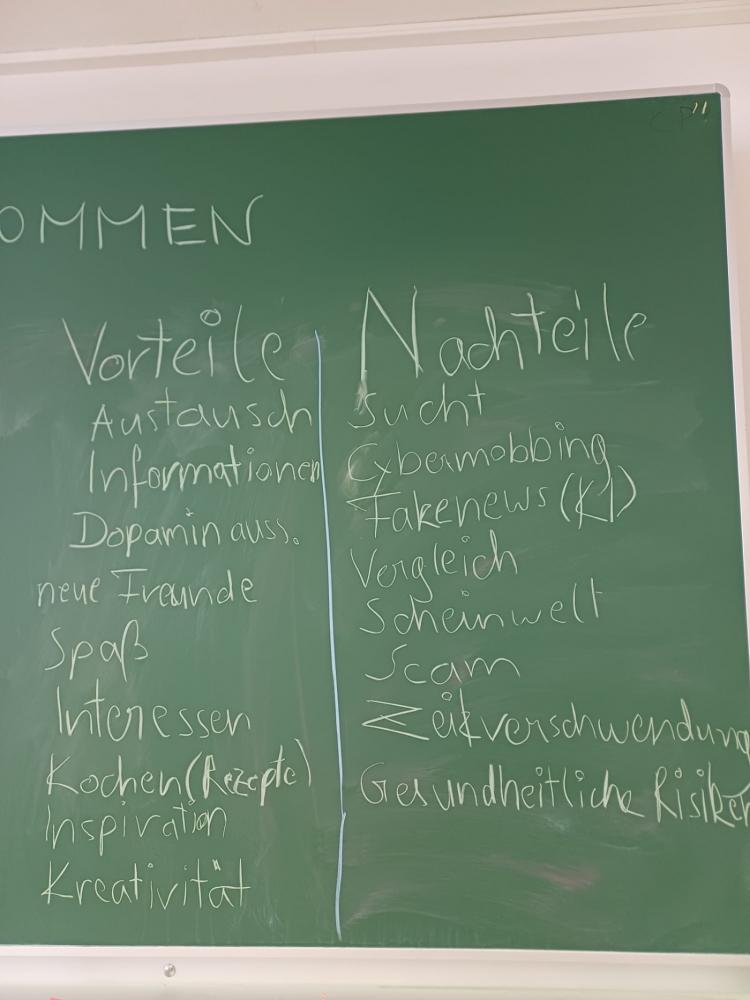 OMMEN
Vorteile
Austausch
Informationen
Dopamin auss.
neue Freunde
Spaß
Interessen
Kochen (Rezepte)
Inspiration
Kreativität
Nachteile
Sucht
Cybermobbing
Fakenews (KI)
Vergleich
Scheinwelt
Scam
Zeitverschwendung
Gesundheitliche Risiken